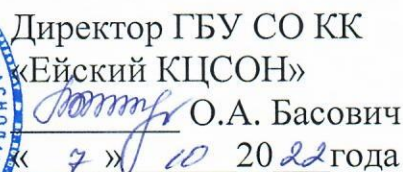 Директор ГБУ СО КК
«Ейский КЦСОН»
О.А. Басович
« 7 » 10 2022 года